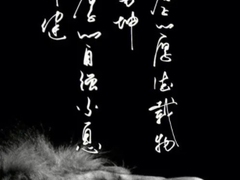 健
以自強不息
坤
以厚德載物